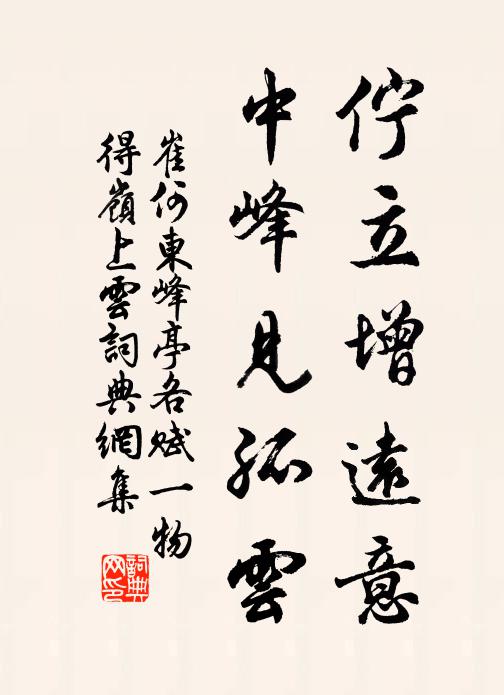 佇立增遠意
中峰見孤雲
崔何東峰亭各賦一物
得嶺上雲詞典網集
詞典
网印